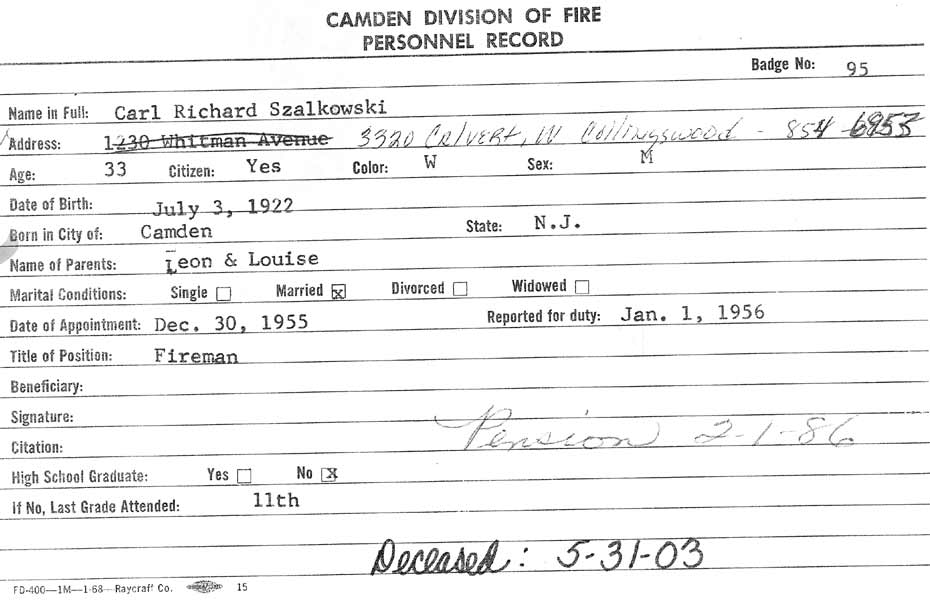 CAMDEN DIVISION OF FIRE
PERSONNEL RECORD
Badge No: 95
Name in Full: Carl Richard Szalkowski
Address: 1230 Whitman Avenue 3320 Calvert, W Collingswood - 854
Age: 33 Citizen: Yes Color: W Sex: M
Date of Birth: July 3, 1922
Born in City of: Camden State: N.J.
Name of Parents: Leon & Louise
Marital Conditions: Single Married x Divorced Widowed
Date of Appointment: Dec. 30, 1955 Reported for duty: Jan. 1, 1956
Title of Position: Fireman
Beneficiary:
Signature:
Pension 2-1-86
Citation:
High School Graduate: Yes No x
If No, Last Grade Attended: 11th
Deceased: 5-31-03
FD-400—1M—1-68—Raycraft Co. 15